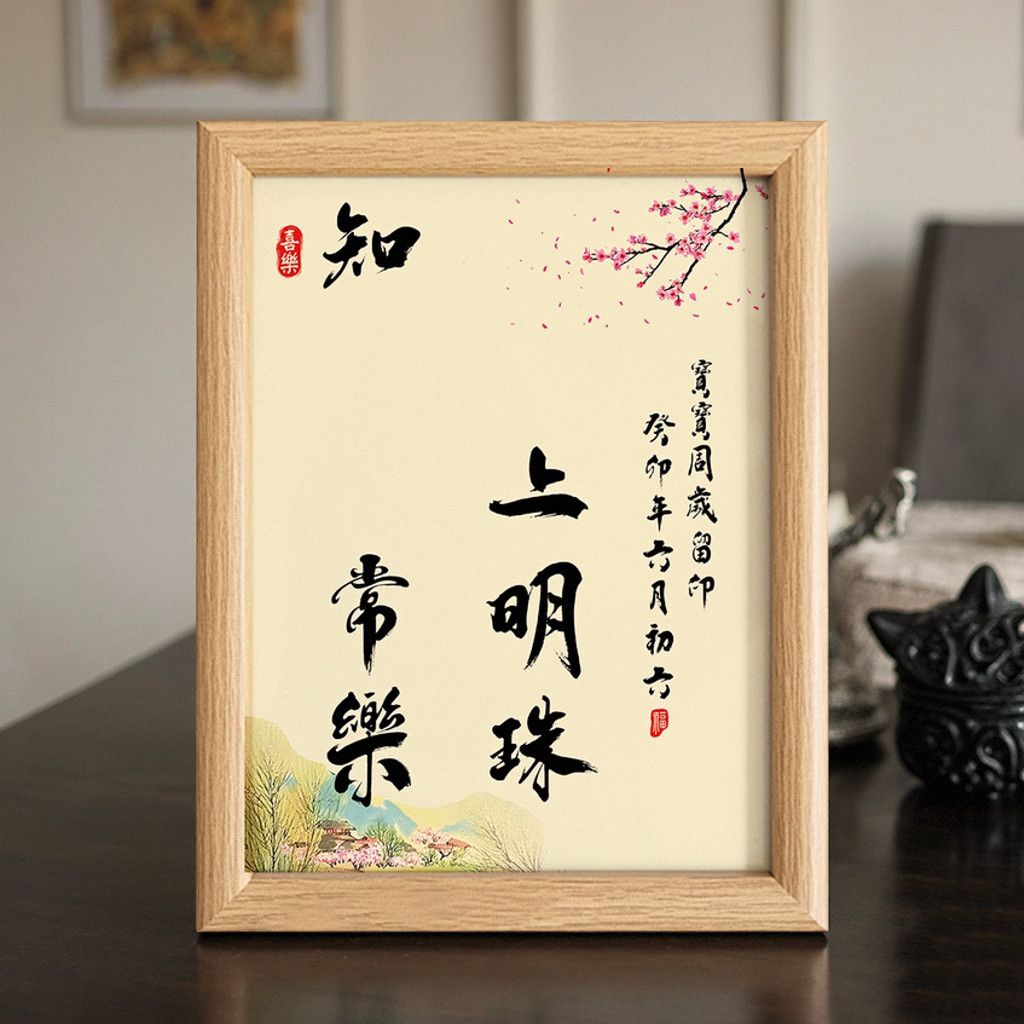 寶寶周歲留印
癸卯年六月初六
福
上明珠
知常樂
喜樂